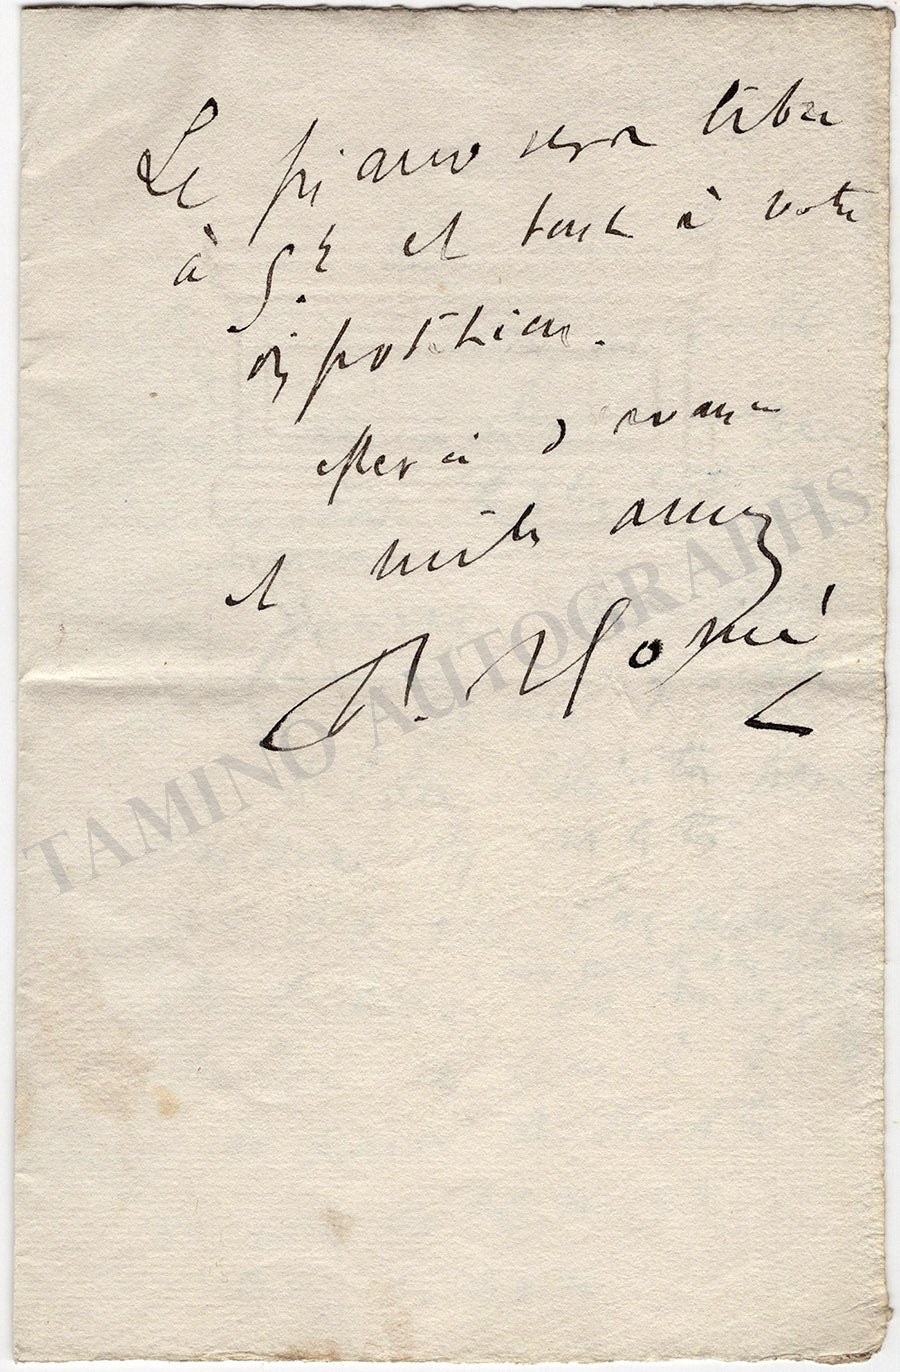 Le piano sera libre
à 5.h et tout à votre
disposition.
Merci d'avance
et mille amitiés
A. Holmès
TAMINO AUTOGRAPHS